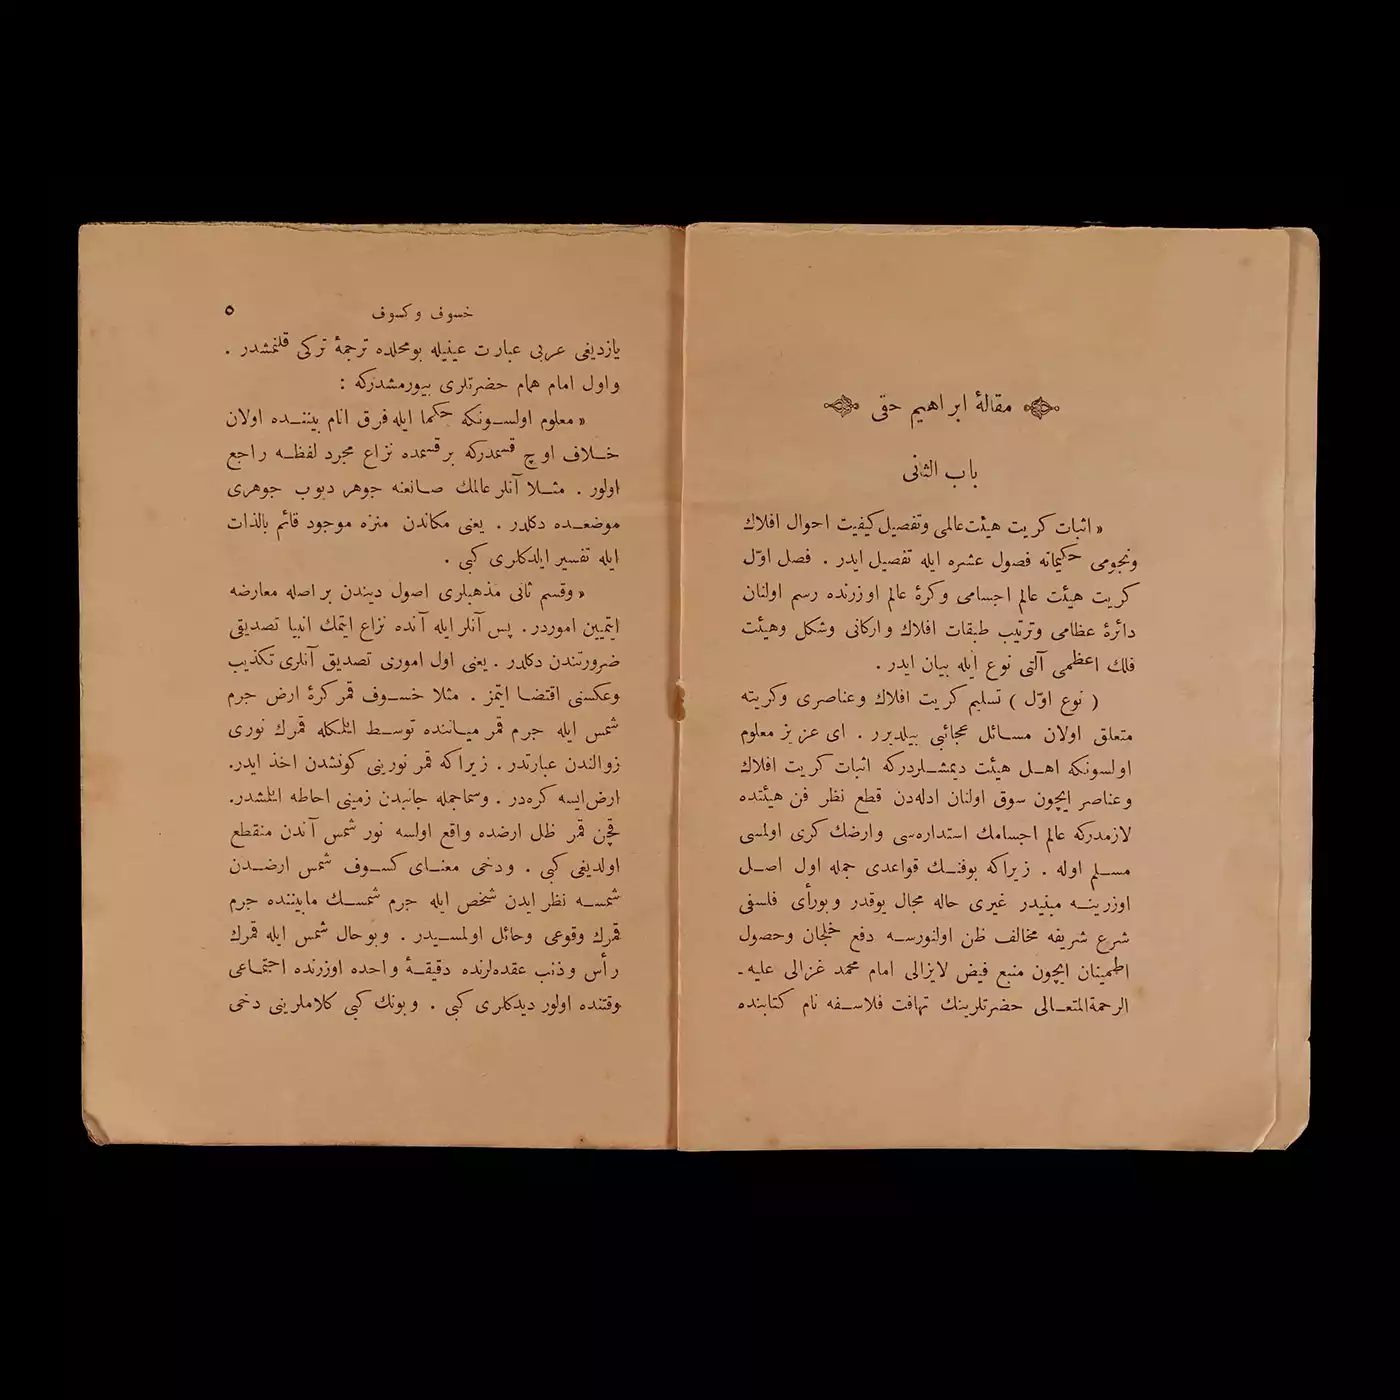 مقالهٔ ابراهیم حقی
باب الثانی
« اثبات كریت هیئت عالمی وتفصیل كیفیت احوال افلاك
ونجومی حكیمانه فصول عشره ایله تفصیل ایدر . فصل اوّل
كریت هیئت عالم اجسامی وكرهٔ عالم اوزرنده رسم اولنان
دائرهٔ عظامی وترتیب طبقات افلاك واركانی وشكل وهیئت
فلك اعظمی آلتی نوع ایله بیان ایدر .
( نوع اوّل ) تسلیم كریت افلاك وعناصری وكریته
متعلق اولان مسائل عجائبی بیلدیرر . ای عزیز معلوم
اولسونكه اهل هیئت دیمشلردركه اثبات كریت افلاك
وعناصر ایچون سوق اولنان ادله‌دن قطع نظر فن هیئتده
لازمدركه عالم اجسامك استداره‌سی وارضك كری اولمسی
مسلم اوله . زیراكه بوفنك قواعدی جمله اول اصل
اوزرینه مبنیدر غیری حاله مجال یوقدر وبورأی فلسفی
شرع شریفه مخالف ظن اولنورسه دفع خلجان وحصول
اطمینان ایچون منبع فیض لایزالی امام محمد غزالی علیه ـ
الرحمةالمتعالی حضرتلرینك تهافت فلاسفه نام كتابنده
خسوف وكسوف ٥
یازدیغی عربی عبارت عینیله بومحلده ترجمهٔ تركی قلنمشدر .
واول امام همام حضرتلری بیورمشدركه :
« معلوم اولسونكه حكما ایله فرق انام بیننده اولان
خلاف اوچ قسمدركه برقسمده نزاع مجرد لفظه راجع
اولور . مثلا آنلر عالمك صانعنه جوهر دیوب جوهری
موضعده دكلدر . یعنی مكاندن منزه موجود قائم بالذات
ایله تفسیر ایلدكلری كبی .
« وقسم ثانی مذهبلری اصول دیندن بر اصله معارضه
ایتمیین اموردر . پس آنلر ایله آنده نزاع ایتمك انبیا تصدیقی
ضرورتندن دكلدر . یعنی اول اموری تصدیق آنلری تكذیب
وعكسنی اقتضا ایتمز . مثلا خسوف قمر كرهٔ ارض جرم
شمس ایله جرم قمر میاننده توسط ایتمكله قمرك نوری
زوالندن عبارتدر . زیراكه قمر نورینی كونشدن اخذ ایدر.
ارض‌ایسه كره‌در . وسماجمله جانبدن زمینی احاطه ایتمشدر.
قچن قمر ظل ارضده واقع اولسه نور شمس آندن منقطع
اولدیغی كبی . ودخی معنای كسوف شمس ارضدن
شمسه نظر ایدن شخص ایله جرم شمسك مابیننده جرم
قمرك وقوعی وحائل اولمسیدر . وبوحال شمس ایله قمرك
رأس وذنب عقده‌لرنده دقیقهٔ واحده اوزرنده اجتماعی
وقتنده اولور دیدكلری كبی . وبونك كبی كلاملرینی دخی